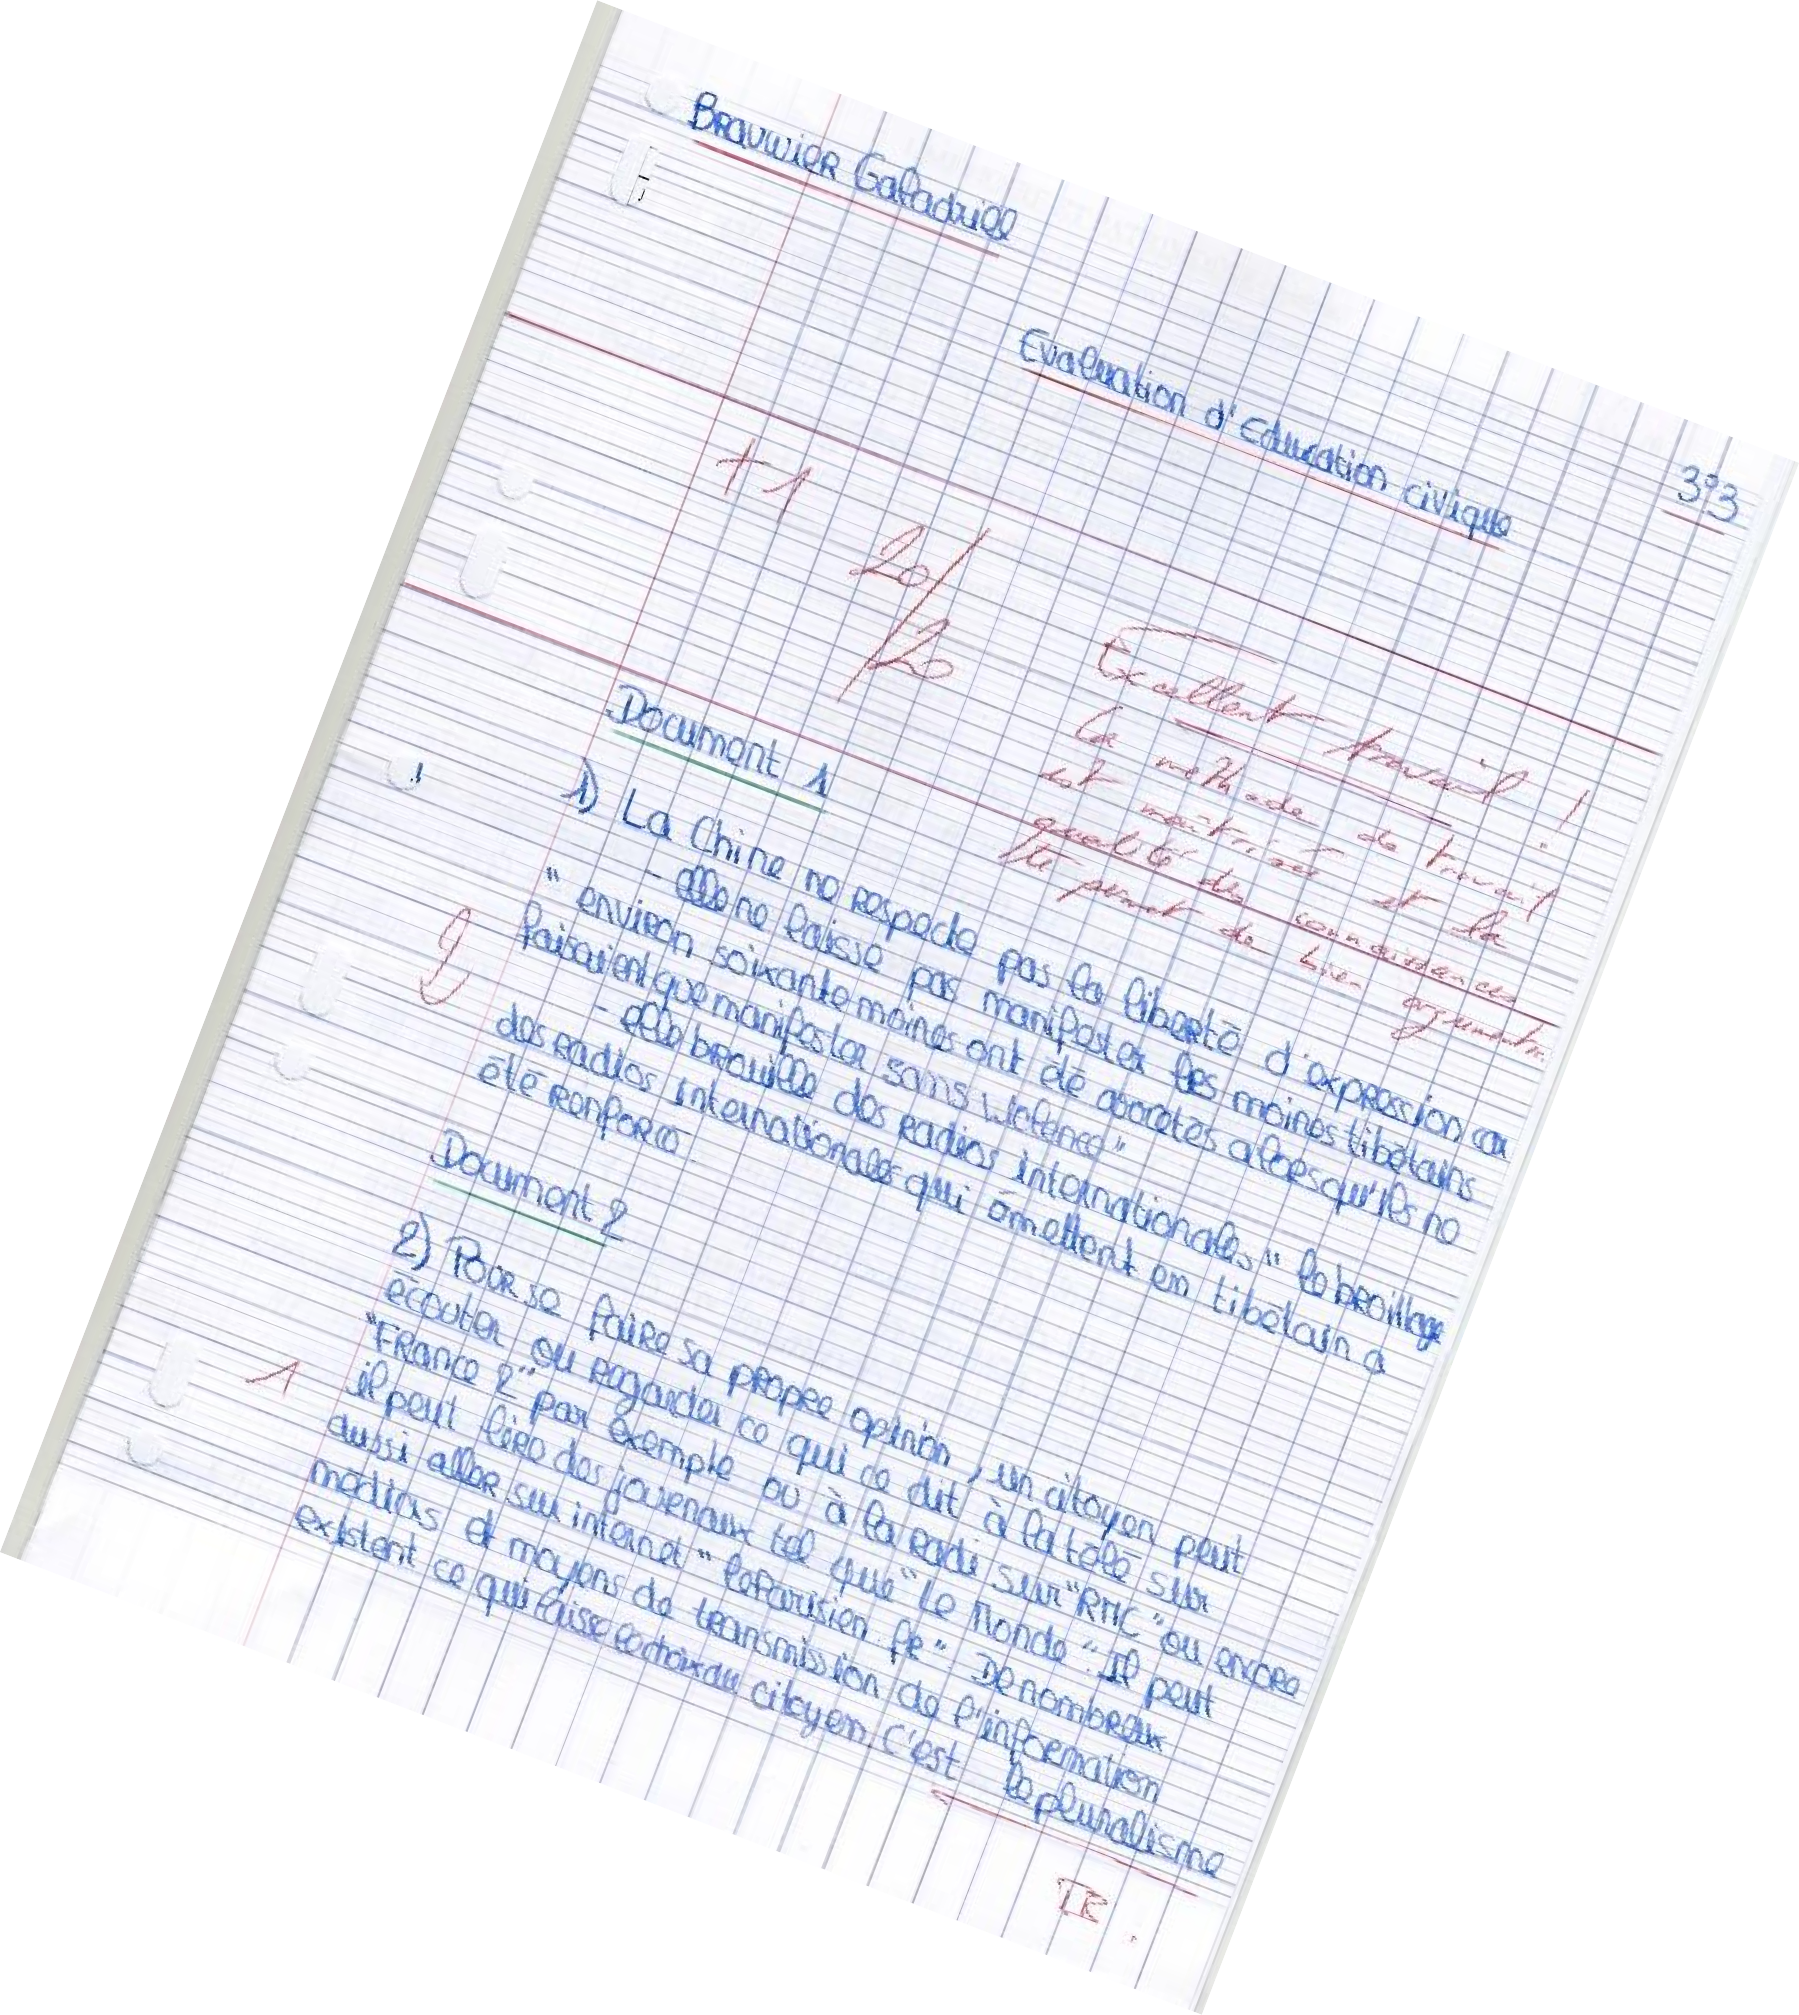 Brauwier Galadriell
Evaluation d'Education civique
3°3
+1
20/20
Excellent travail !
La méthode de travail
est maîtrisée et la
qualité des connaissances
te permet de bien argumenter.
Document 1
1) La Chine ne respecte pas la liberté d'expression car
- elle ne laisse pas manifester les moines tibétains
" environ soixante moines ont été arretés alors qu'ils ne
faisaient que manifester sans violence"
- elle brouille des radios internationales " le brouillage
des radios internationales qui émettent en tibétain a
été renforcé.
2
Document 2
2) Pour se faire sa propre opinion, un citoyen peut
écouter ou regarder ce qui ce dit à la télé sur
"France 2" par exemple ou à la radi sur "RMC" ou encore
il peut lire des journaux tel que "Le Monde". Il peut
aussi aller sur internet " leParisien.fr". De nombreux
médias et moyens de transmission de l'information
existent ce qui laisse le choix au citoyen. C'est le pluralisme
1
TB.